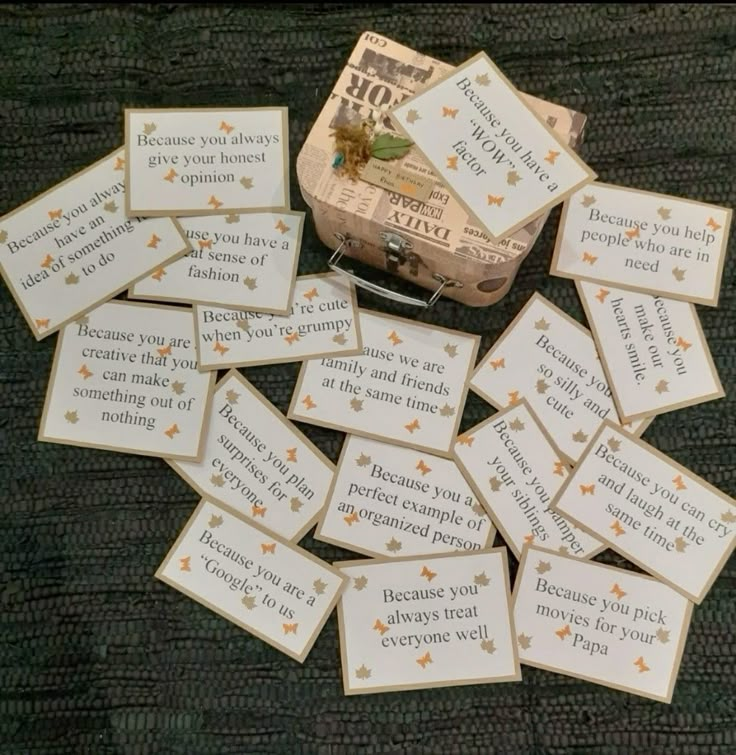 DAILY
Because you have a
"WOW"
factor
Because you always
give your honest
opinion
Because you
have an
idea of something
to do
you have a
sense of
fashion
Because you help
people who are in
need
you
make our
hearts smile.
cute
when you're grumpy
Because you are
creative that you
can make
something out of
nothing
we are
family and friends
at the same time
Because you
so silly and
cute
Because you plan
surprises for
everyone
Because you a
perfect example of
an organized person
Because you pamper
your siblings
Because you can cry
and laugh at the
same time
Because you are a
"Google" to us
Because you
always treat
everyone well
Because you pick
movies for your
Papa